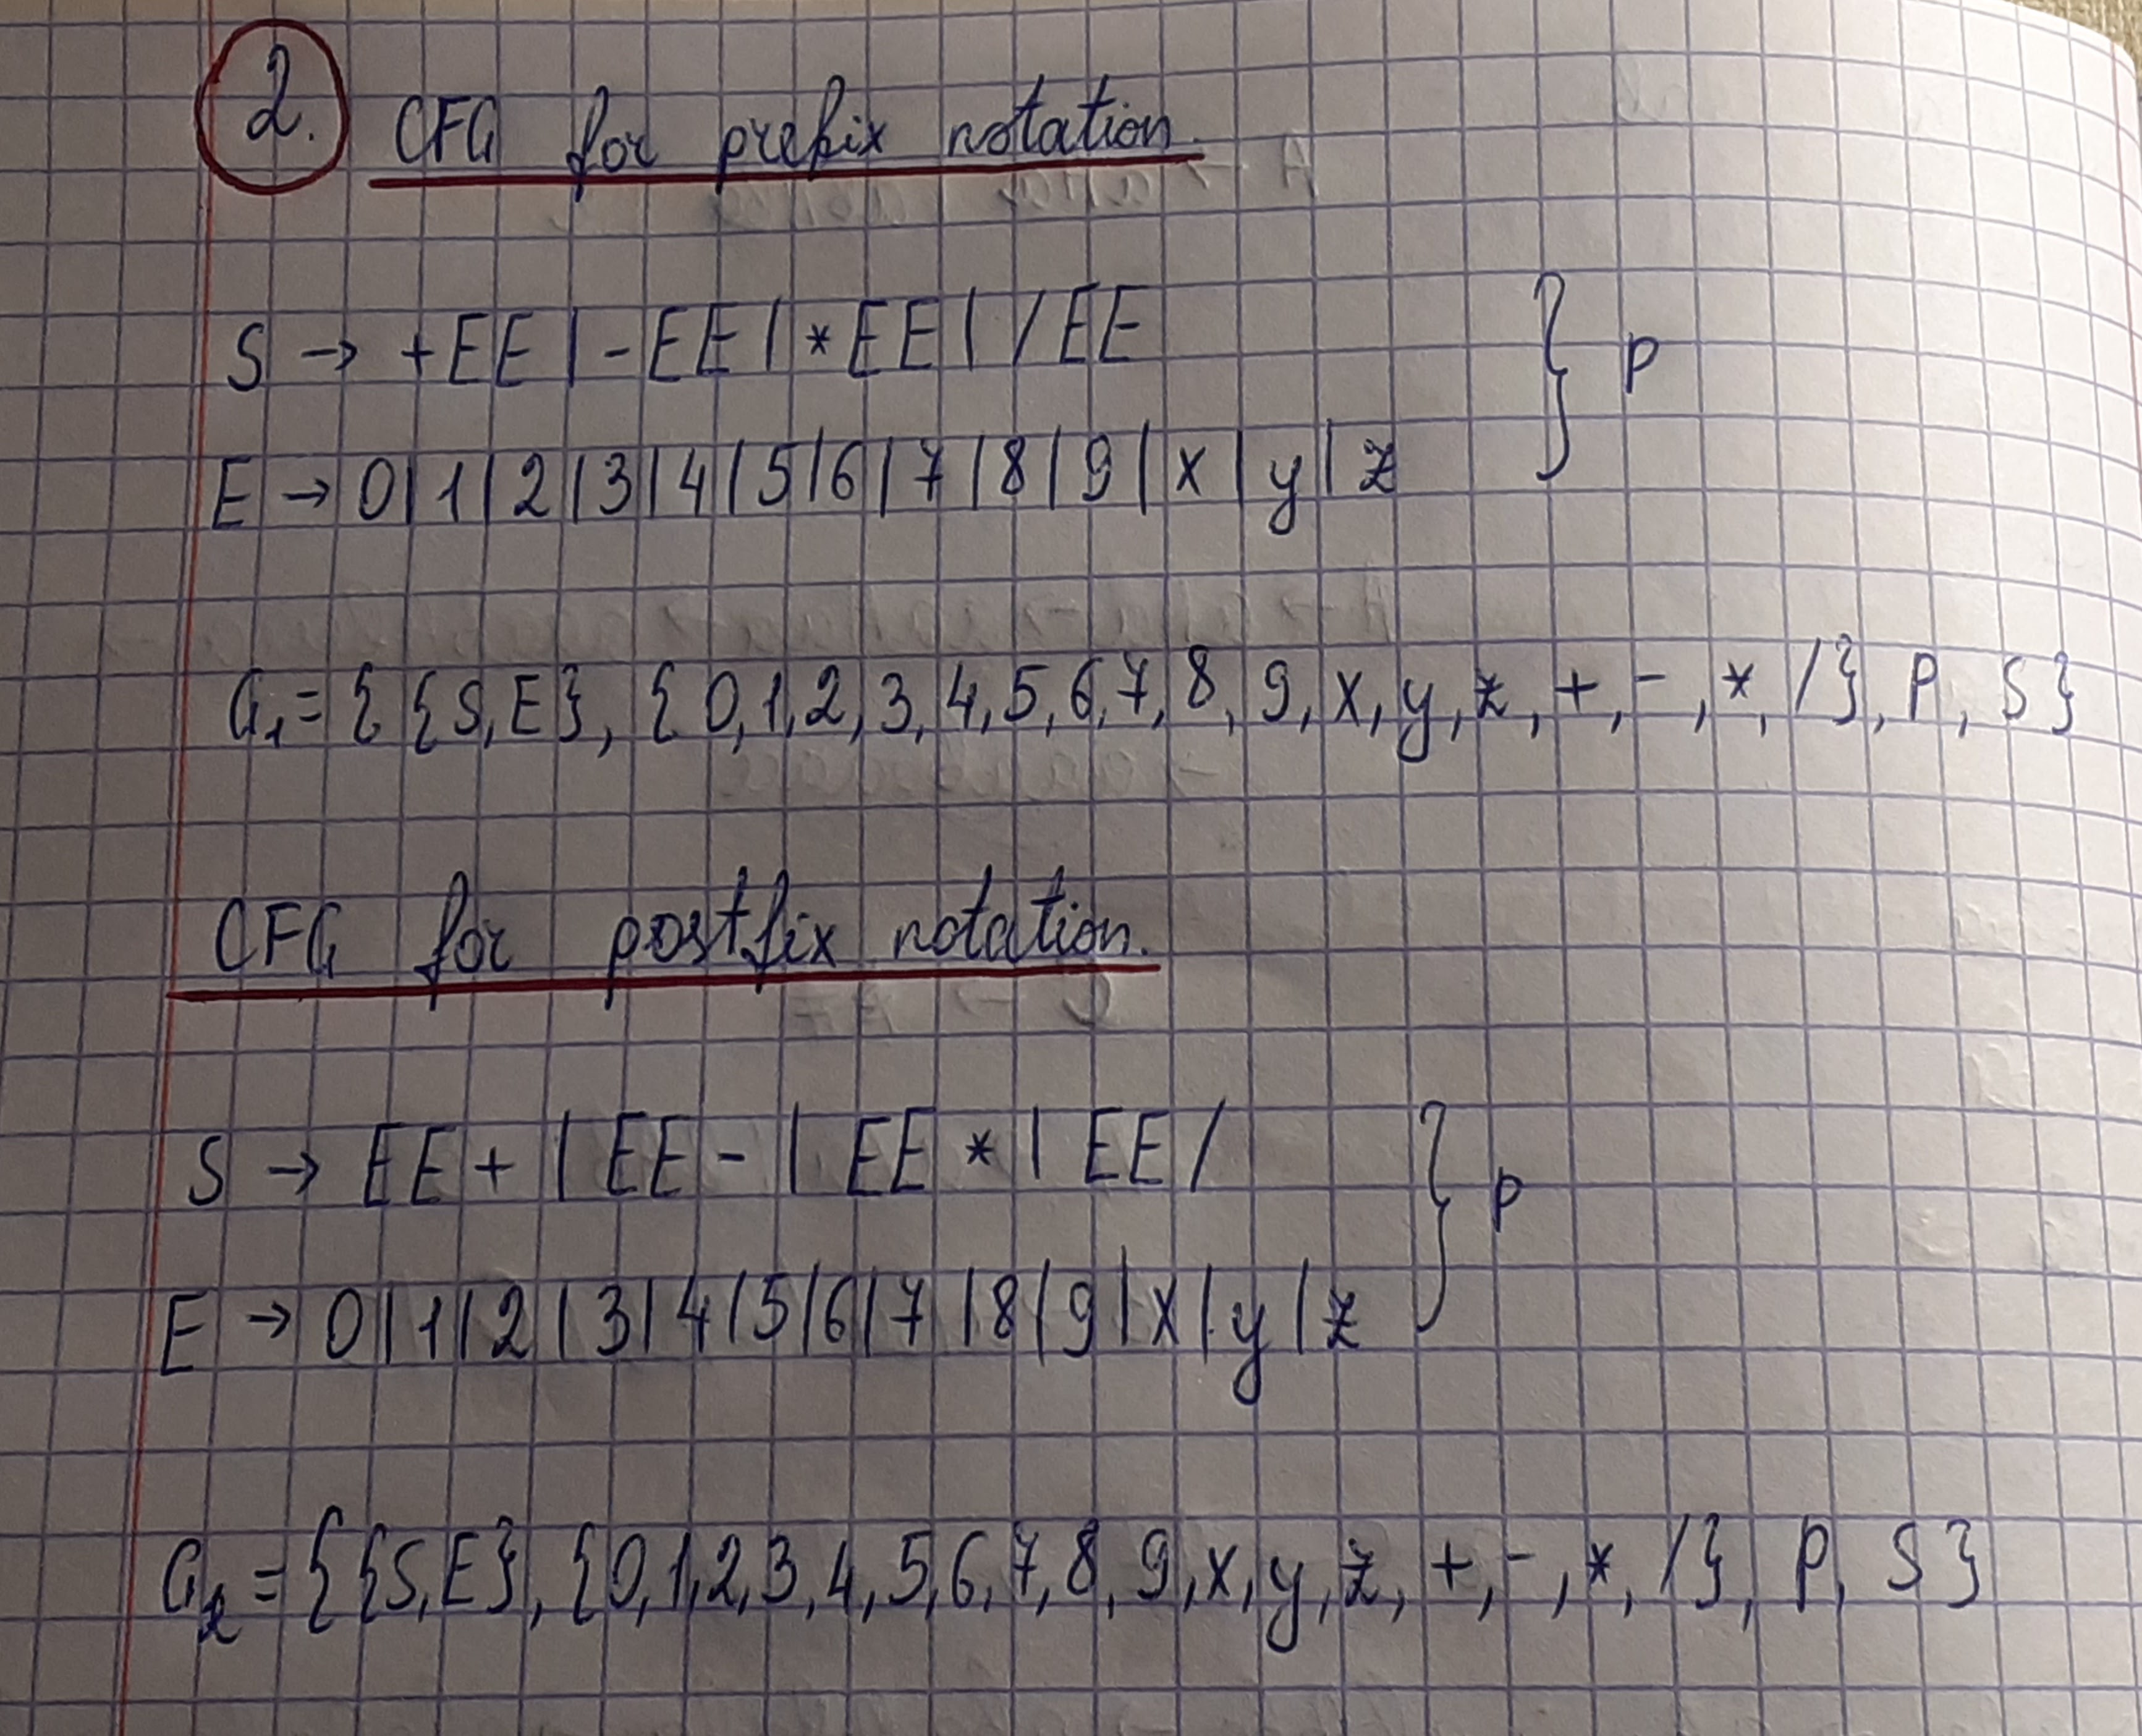 2. CFG for prefix notation.
S → +EE | -EE | *EE | /EE } P
E → 0|1|2|3|4|5|6|7|8|9|x|y|z
G₁= { {S,E}, {0,1,2,3,4,5,6,7,8,9,x,y,z,+,-,*,/}, P, S}
CFG for postfix notation.
S → EE+ | EE- | EE* | EE/ } P
E → 0|1|2|3|4|5|6|7|8|9|x|y|z
G₂= { {S,E}, {0,1,2,3,4,5,6,7,8,9,x,y,z,+,-,*,/}, P, S}